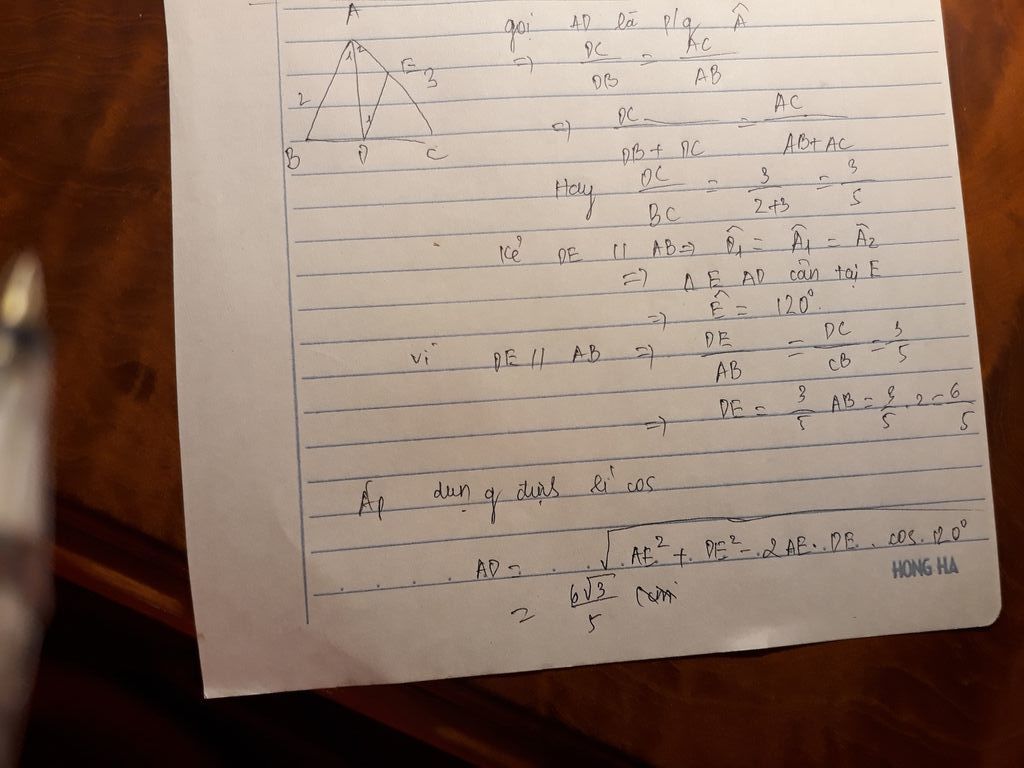 A
1 2
E 3
2
1
B D C
gọi AD là p/g Â
=> DC/DB = AC/AB
=> DC/DB + DC = AC/AB + AC
Hay DC/BC = 3/2+3 = 3/5
Kẻ DE // AB => D̂1 = Â1 = Â2
=> Δ E AD cân tại E
=> Ê = 120°.
vì DE // AB => DE/AB = DC/CB = 3/5
=> DE = 3/5 AB = 3/5 . 2 = 6/5
Áp dụng định lí cos
AD = √AE² + DE² - 2AE . DE . cos 120°
= 6√3/5 cm
HONG HA